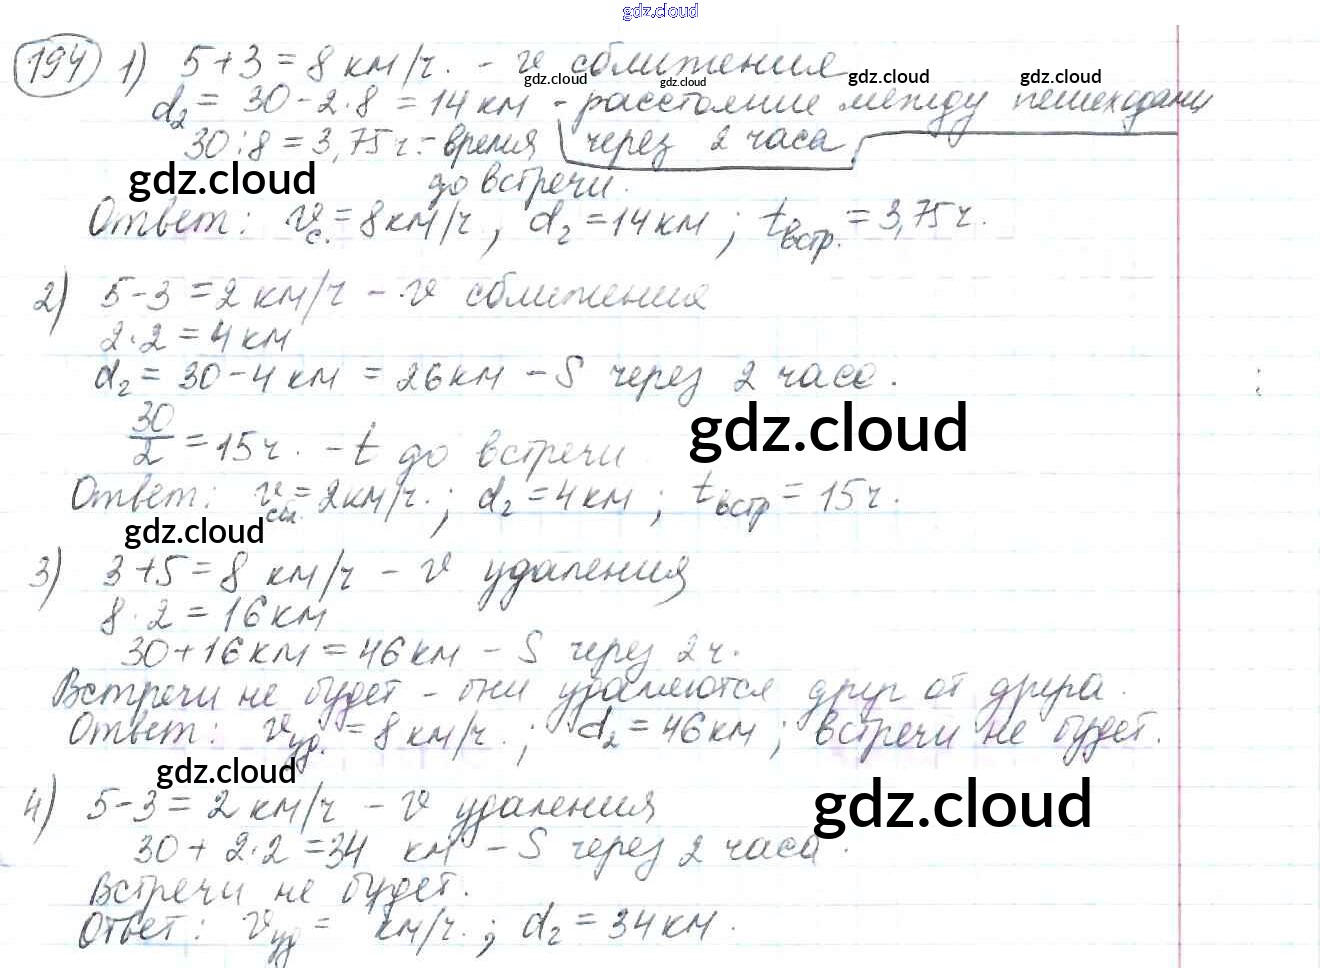 gdz.cloud
194 1) 5+3=8 км/ч. - v сближения
gdz.cloud gdz.cloud gdz.cloud gdz.cloud
d₂ = 30-2·8 = 14 км - расстояние между пешеходами
30:8 = 3,75 ч. - время через 2 часа
gdz.cloud до встречи.
Ответ: vс. = 8 км/ч, d₂ = 14 км; tвстр. = 3,75 ч.
2) 5-3 = 2 км/ч - v сближения
2·2 = 4 км
d₂ = 30-4 км = 26 км - S через 2 часа.
30/2 = 15 ч. - t до встречи
gdz.cloud
Ответ: vсбл. = 2 км/ч.; d₂ = 4 км; tвстр = 15 ч.
gdz.cloud
3) 3+5 = 8 км/ч - v удаления
8·2 = 16 км
30+16 км = 46 км - S через 2 ч.
Встречи не будет - они удаляются друг от друга.
Ответ: vуд. = 8 км/ч.; d₂ = 46 км; встречи не будет.
gdz.cloud
4) 5-3 = 2 км/ч - v удаления
gdz.cloud
30 + 2·2 = 34 км - S через 2 часа.
Встречи не будет.
Ответ: vуд = км/ч.; d₂ = 34 км.